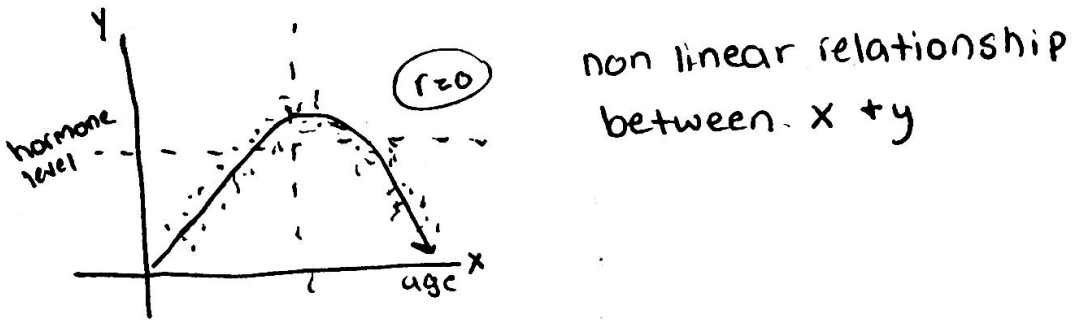 Y
r=0
hormone
level
x
age
non linear relationship
between x + y